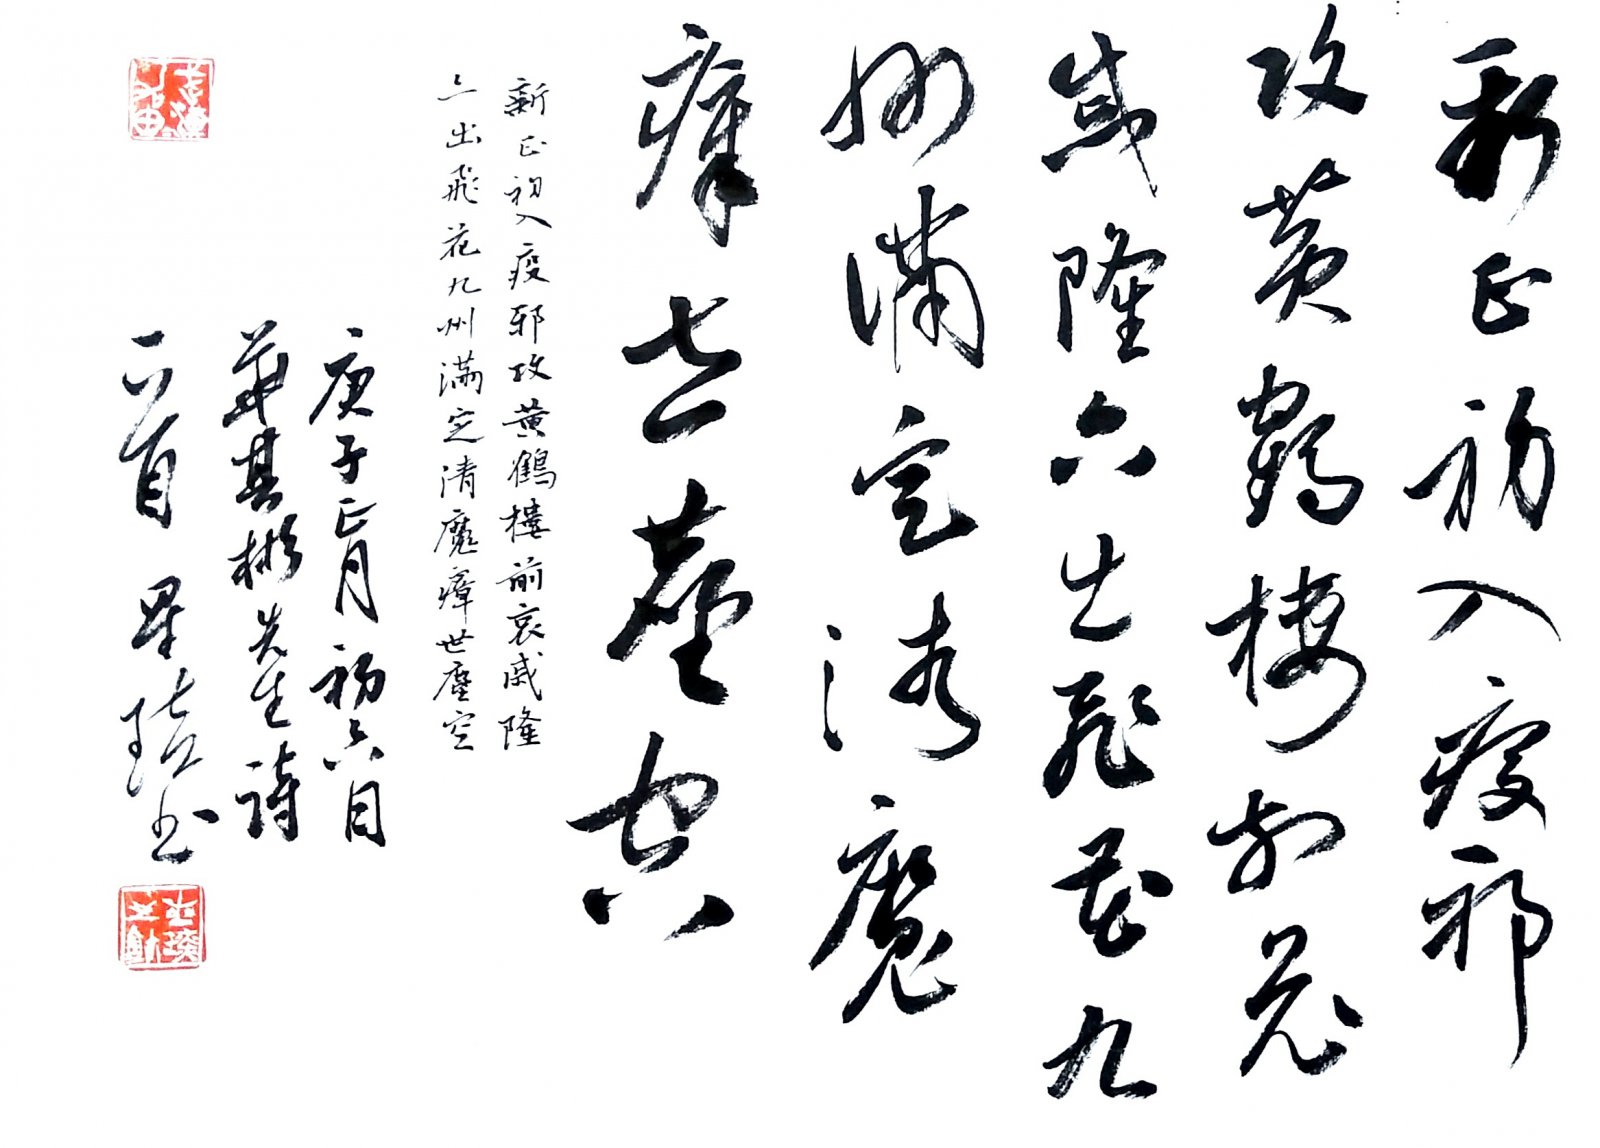 新正初入疫邪
攻黄鹤楼前哀
戚隆六出飛花九
州满定清魔
瘴世塵空
新正初入疫邪攻黄鹤樓前哀戚隆
六出飛花九州满定清魔瘴世塵空
庚子正月初六日
華其彬先生詩
一首 星 書